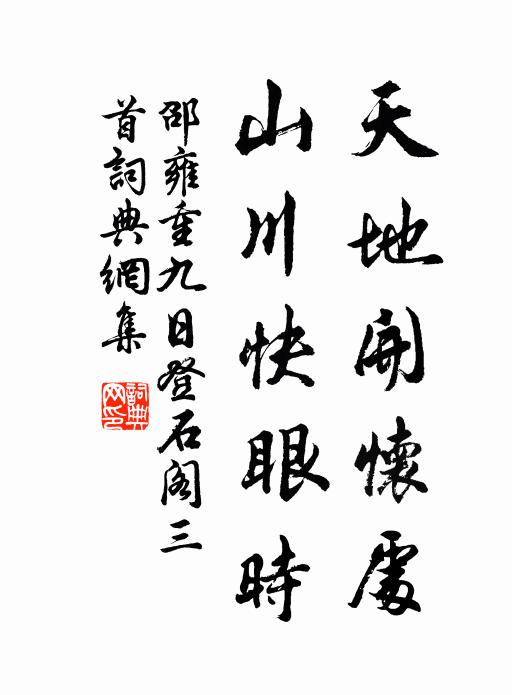 天地開懷處
山川快眼時
邵雍重九日登石閣三
首詞典網集
詞典
网印